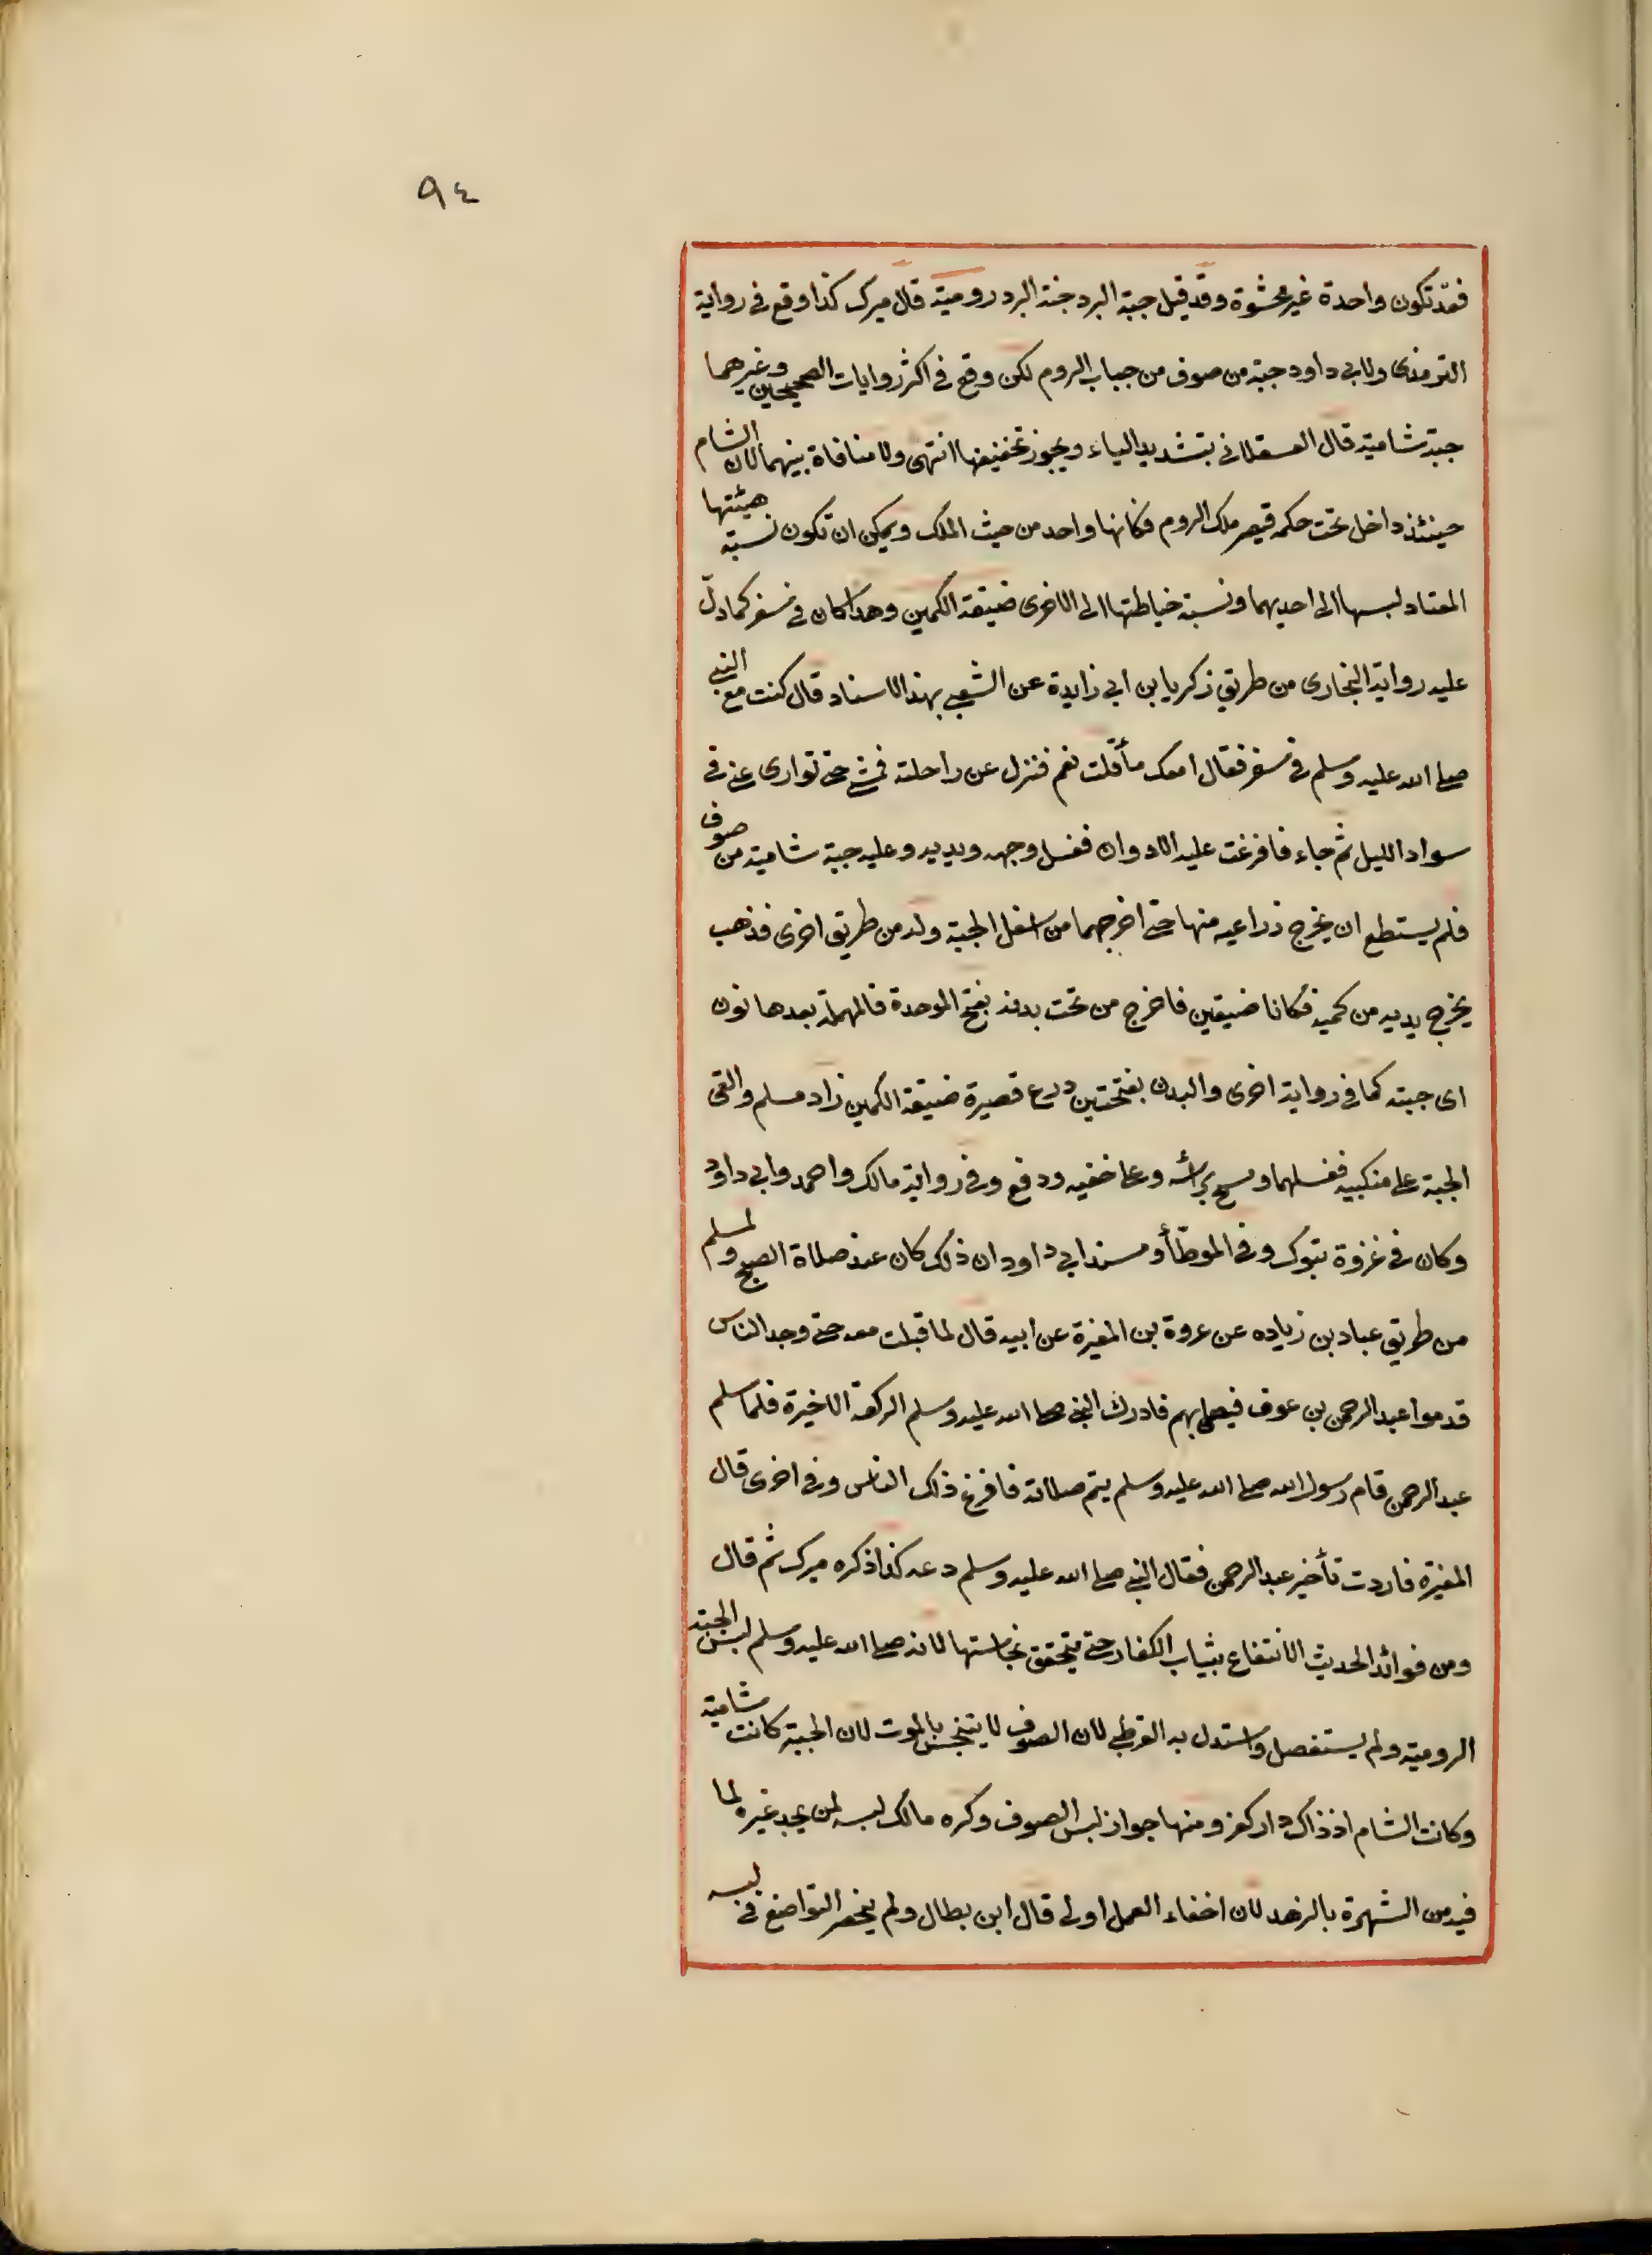 ٩٤
فقد تكون واحدة غير محشوة وقد قيل جبة البرد جنة البرد رومية قال ميرك كذا وقع في رواية
الترمذى ولابي داود جبة من صوف من جباب الروم لكن وقع في اكثر روايات الصحيحين وغيرهما
جبة شامية قال العسقلاني بتشديد الياء ويجوز تخفيفها انتهى ولا منافاة بينهما لان الشام
حينئذ داخل تحت حكم قيصر ملك الروم فكانها واحد من حيث الملك ويمكن ان تكون نسبة هيئتها
المعتاد لبسها الى احديهما ونسبة خياطتها الى الاخرى ضيقة الكمين وهذا كان في سفر كما دلّ
عليه رواية البخارى من طريق زكريا بن ابي زايدة عن الشعبي بهذا الاسناد قال كنت مع النبي
صلى الله عليه وسلم في سفر فقال امعك مأ قلت نعم فنزل عن راحلته فمشى حتى توارى عني في
سواد الليل ثم جاء فافرغت عليه الادوان فغسل وجهه ويديه وعليه جبة شامية من صوف
فلم يستطع ان يخرج ذراعيه منها حتى اخرجهما من اسفل الجبة وله من طريق اخرى فذهب
يخرج يديه من كميه فكانا ضيقين فاخرج من تحت بدنه بفتح الموحدة فالمهملة بعدها نون
اى جبته كما في رواية اخرى والبدن بفتحتين درع قصيرة ضيقة الكمين زاد مسلم والقى
الجبة على منكبيه فغسلهما ومسح برأسه وعلى خفيه ودفع وفي رواية مالك واحمد وابي داود
وكان في غزوة تبوك وفي الموطّأ ومسند ابي داود ان ذلك كان عند صلاة الصبح ولمسلم
من طريق عباد بن زياده عن عروة بن المغيرة عن ابيه قال لما قبلت معه حتى وجد الناس
قدموا عبد الرحمن بن عوف فيصلي بهم فادرك النبي صلى الله عليه وسلم الركعة الاخيرة فلما سلم
عبد الرحمن قام رسول الله صلى الله عليه وسلم يتم صلاته فافرغ ذلك الناس وفي اخرى قال
المغيرة فاردت تأخير عبد الرحمن فقال النبي صلى الله عليه وسلم دعه كذا ذكره ميرك ثم قال
ومن فوائد الحديث الانتفاع بثياب الكفار حتى يتحقق نجاستها لانه صلى الله عليه وسلم لبس الجبة
الرومية ولم يستفصل واستدل به القرطبي لان الصوف لا يتنجس بالموت لان الجبة كانت شامية
وكانت الشام اذ ذاك دار كفر ومنها جواز لبس الصوف وكره مالك لبسه لمن يجد غيره لما
فيه من الشهرة بالزهد لان اخفاء العمل اولى قال ابن بطال ولم ينحصر التواضع في لبسه